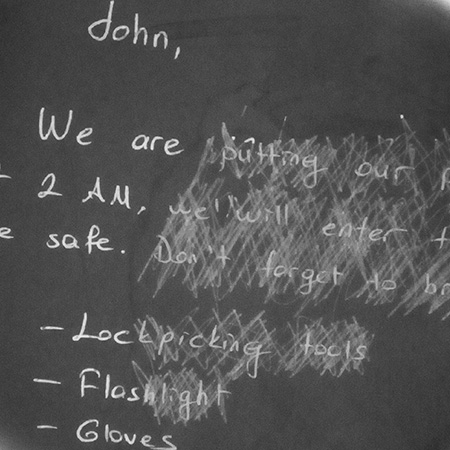 John,
We are putting our
2 AM, we'll will enter
safe. Don't forget to
- Lockpicking tools
- Flashlight
- Gloves